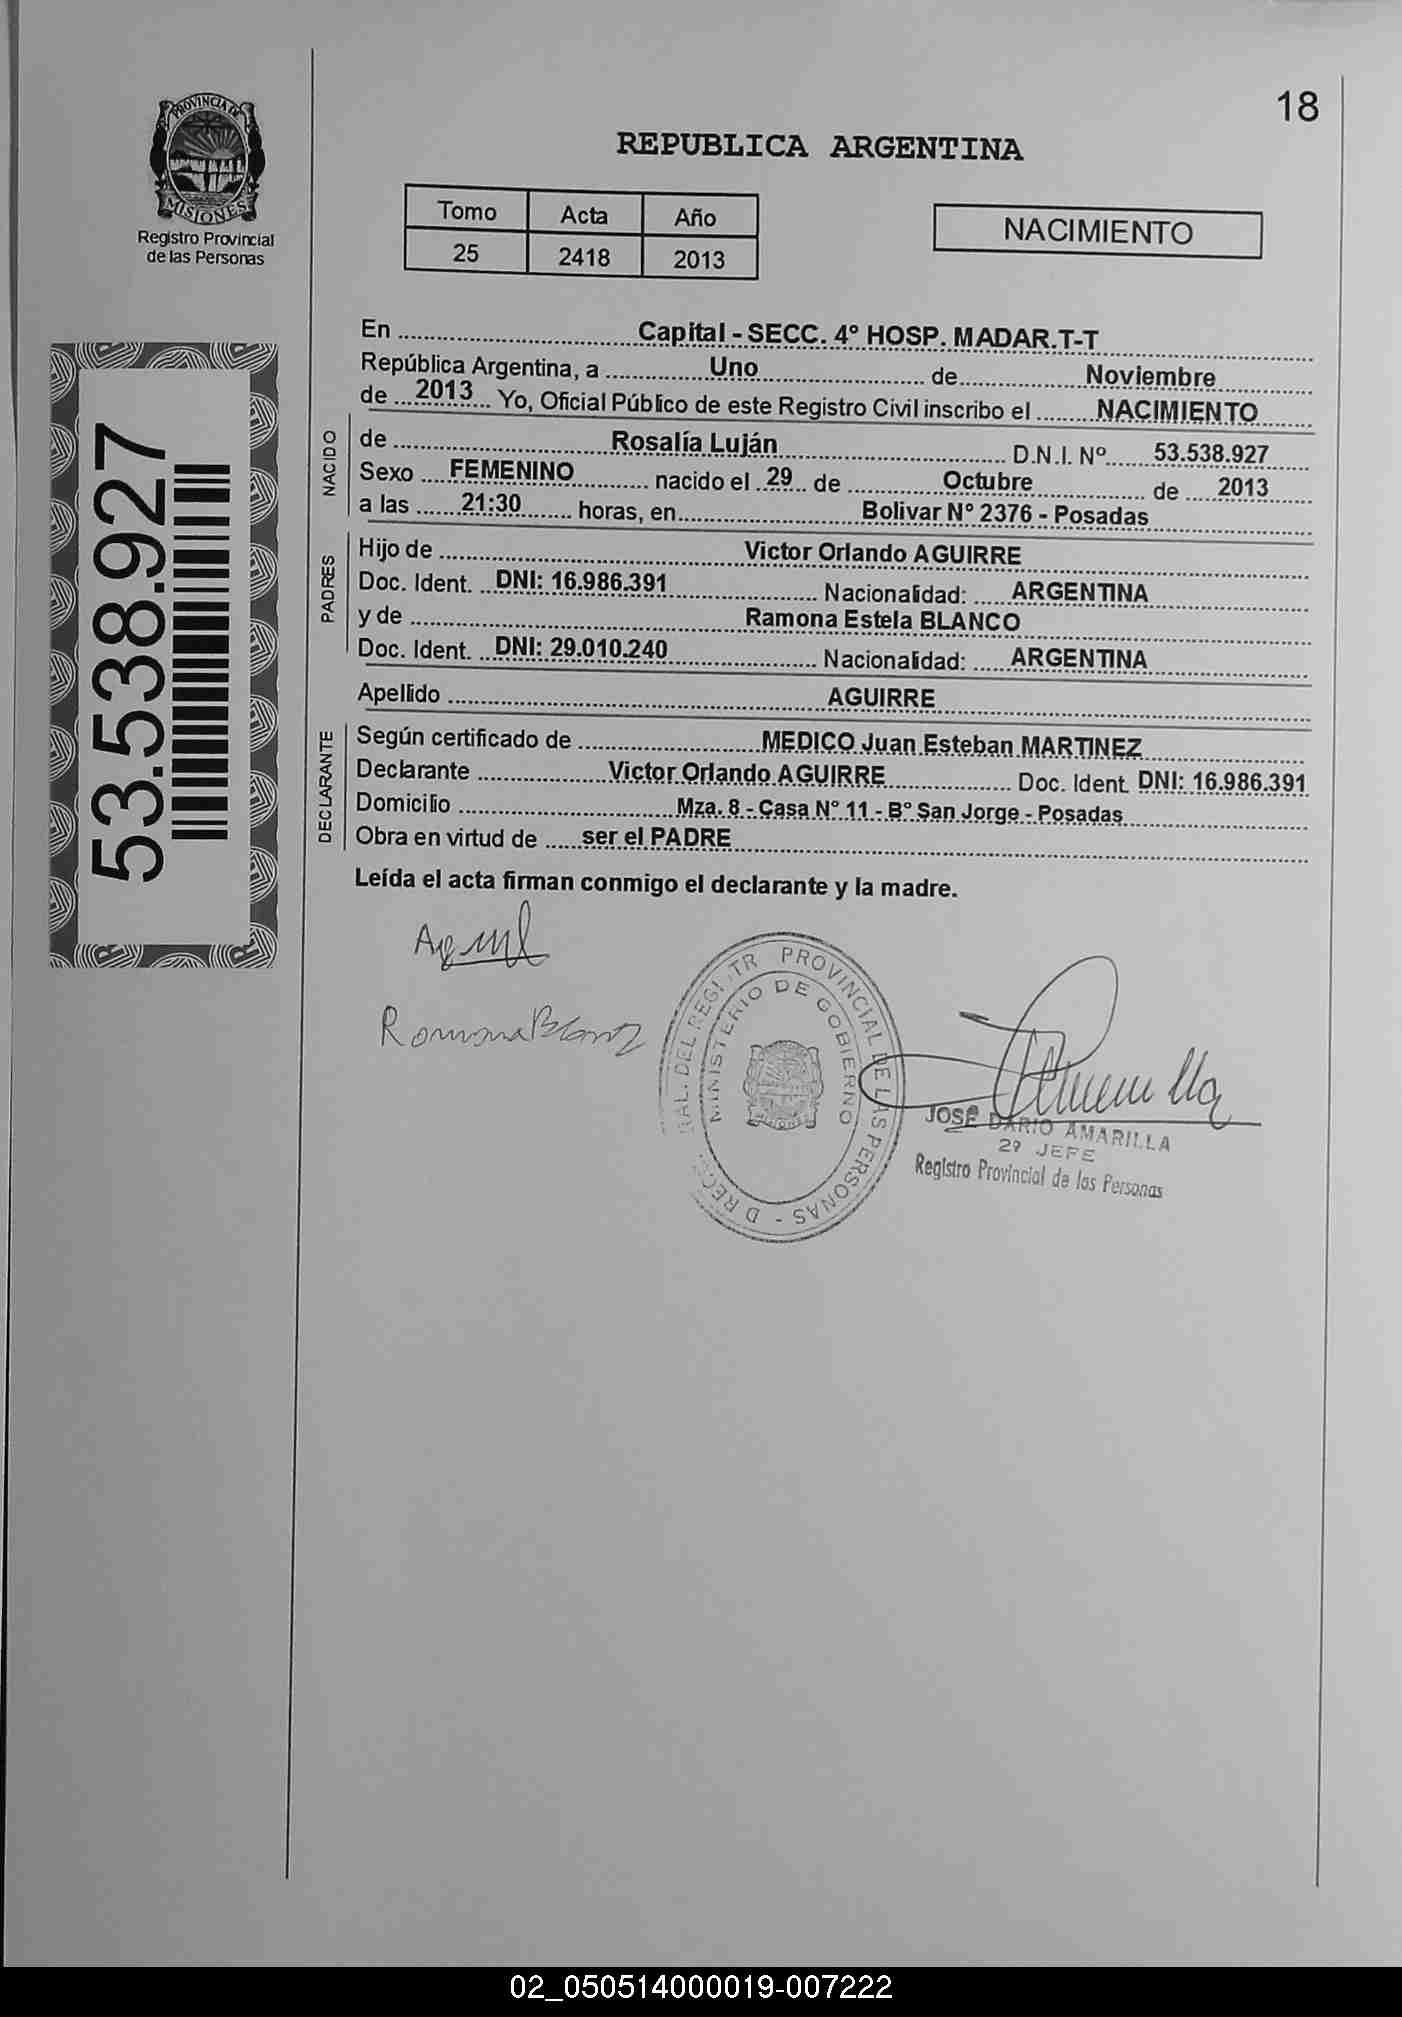 18
PROVINCIA DE
MISIONES
Registro Provincial
de las Personas
REPUBLICA ARGENTINA
Tomo Acta Año
25 2418 2013
NACIMIENTO
53.538.927
En Capital - SECC. 4º HOSP. MADAR.T-T
República Argentina, a Uno de Noviembre
de 2013 Yo, Oficial Público de este Registro Civil inscribo el NACIMIENTO
NACIDO
de Rosalía Luján D.N.I. Nº 53.538.927
Sexo FEMENINO nacido el 29 de Octubre de 2013
a las 21:30 horas, en Bolivar N° 2376 - Posadas
PADRES
Hijo de Victor Orlando AGUIRRE
Doc. Ident. DNI: 16.986.391 Nacionalidad: ARGENTINA
y de Ramona Estela BLANCO
Doc. Ident. DNI: 29.010.240 Nacionalidad: ARGENTINA
Apellido AGUIRRE
DECLARANTE
Según certificado de MEDICO Juan Esteban MARTINEZ
Declarante Victor Orlando AGUIRRE Doc. Ident. DNI: 16.986.391
Domicilio Mza. 8 - Casa N° 11 - B° San Jorge - Posadas
Obra en virtud de ser el PADRE
Leída el acta firman conmigo el declarante y la madre.
Ramona Blanco
PROVINCIAL DE LAS PERSONAS
MINISTERIO DE GOBIERNO
JOSE DARIO AMARILLA
2º JEFE
Registro Provincial de las Personas
02_050514000019-007222